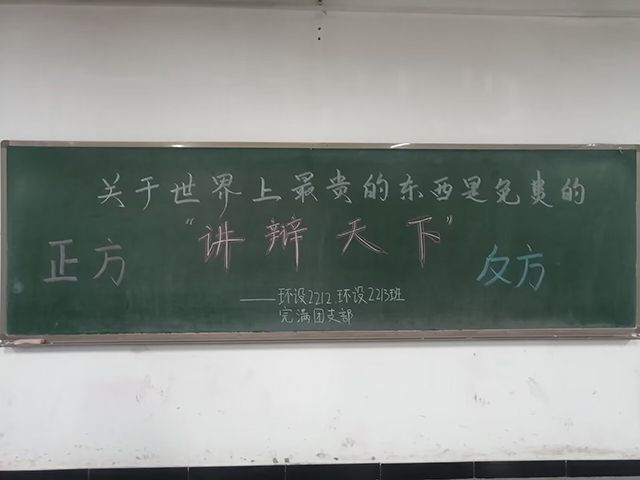 关于世界上最贵的东西是免费的
“讲辩天下”
正方
反方
——环设2212 环设2213班
完满团支部